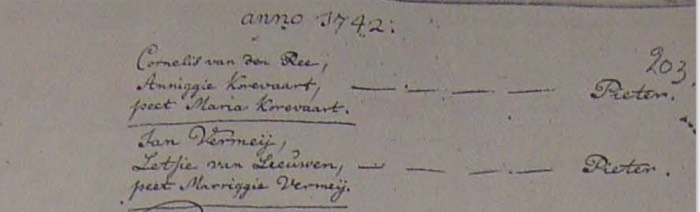 anno 1742:
203
Cornelis van den Ree,
Anniggie Korevaart, — — — — Pieter.
peet Maria Korevaart.
Jan Vermeij,
Zetsie van Leeuwen, — — — — Pieter.
peet Marriggie Vermeij.